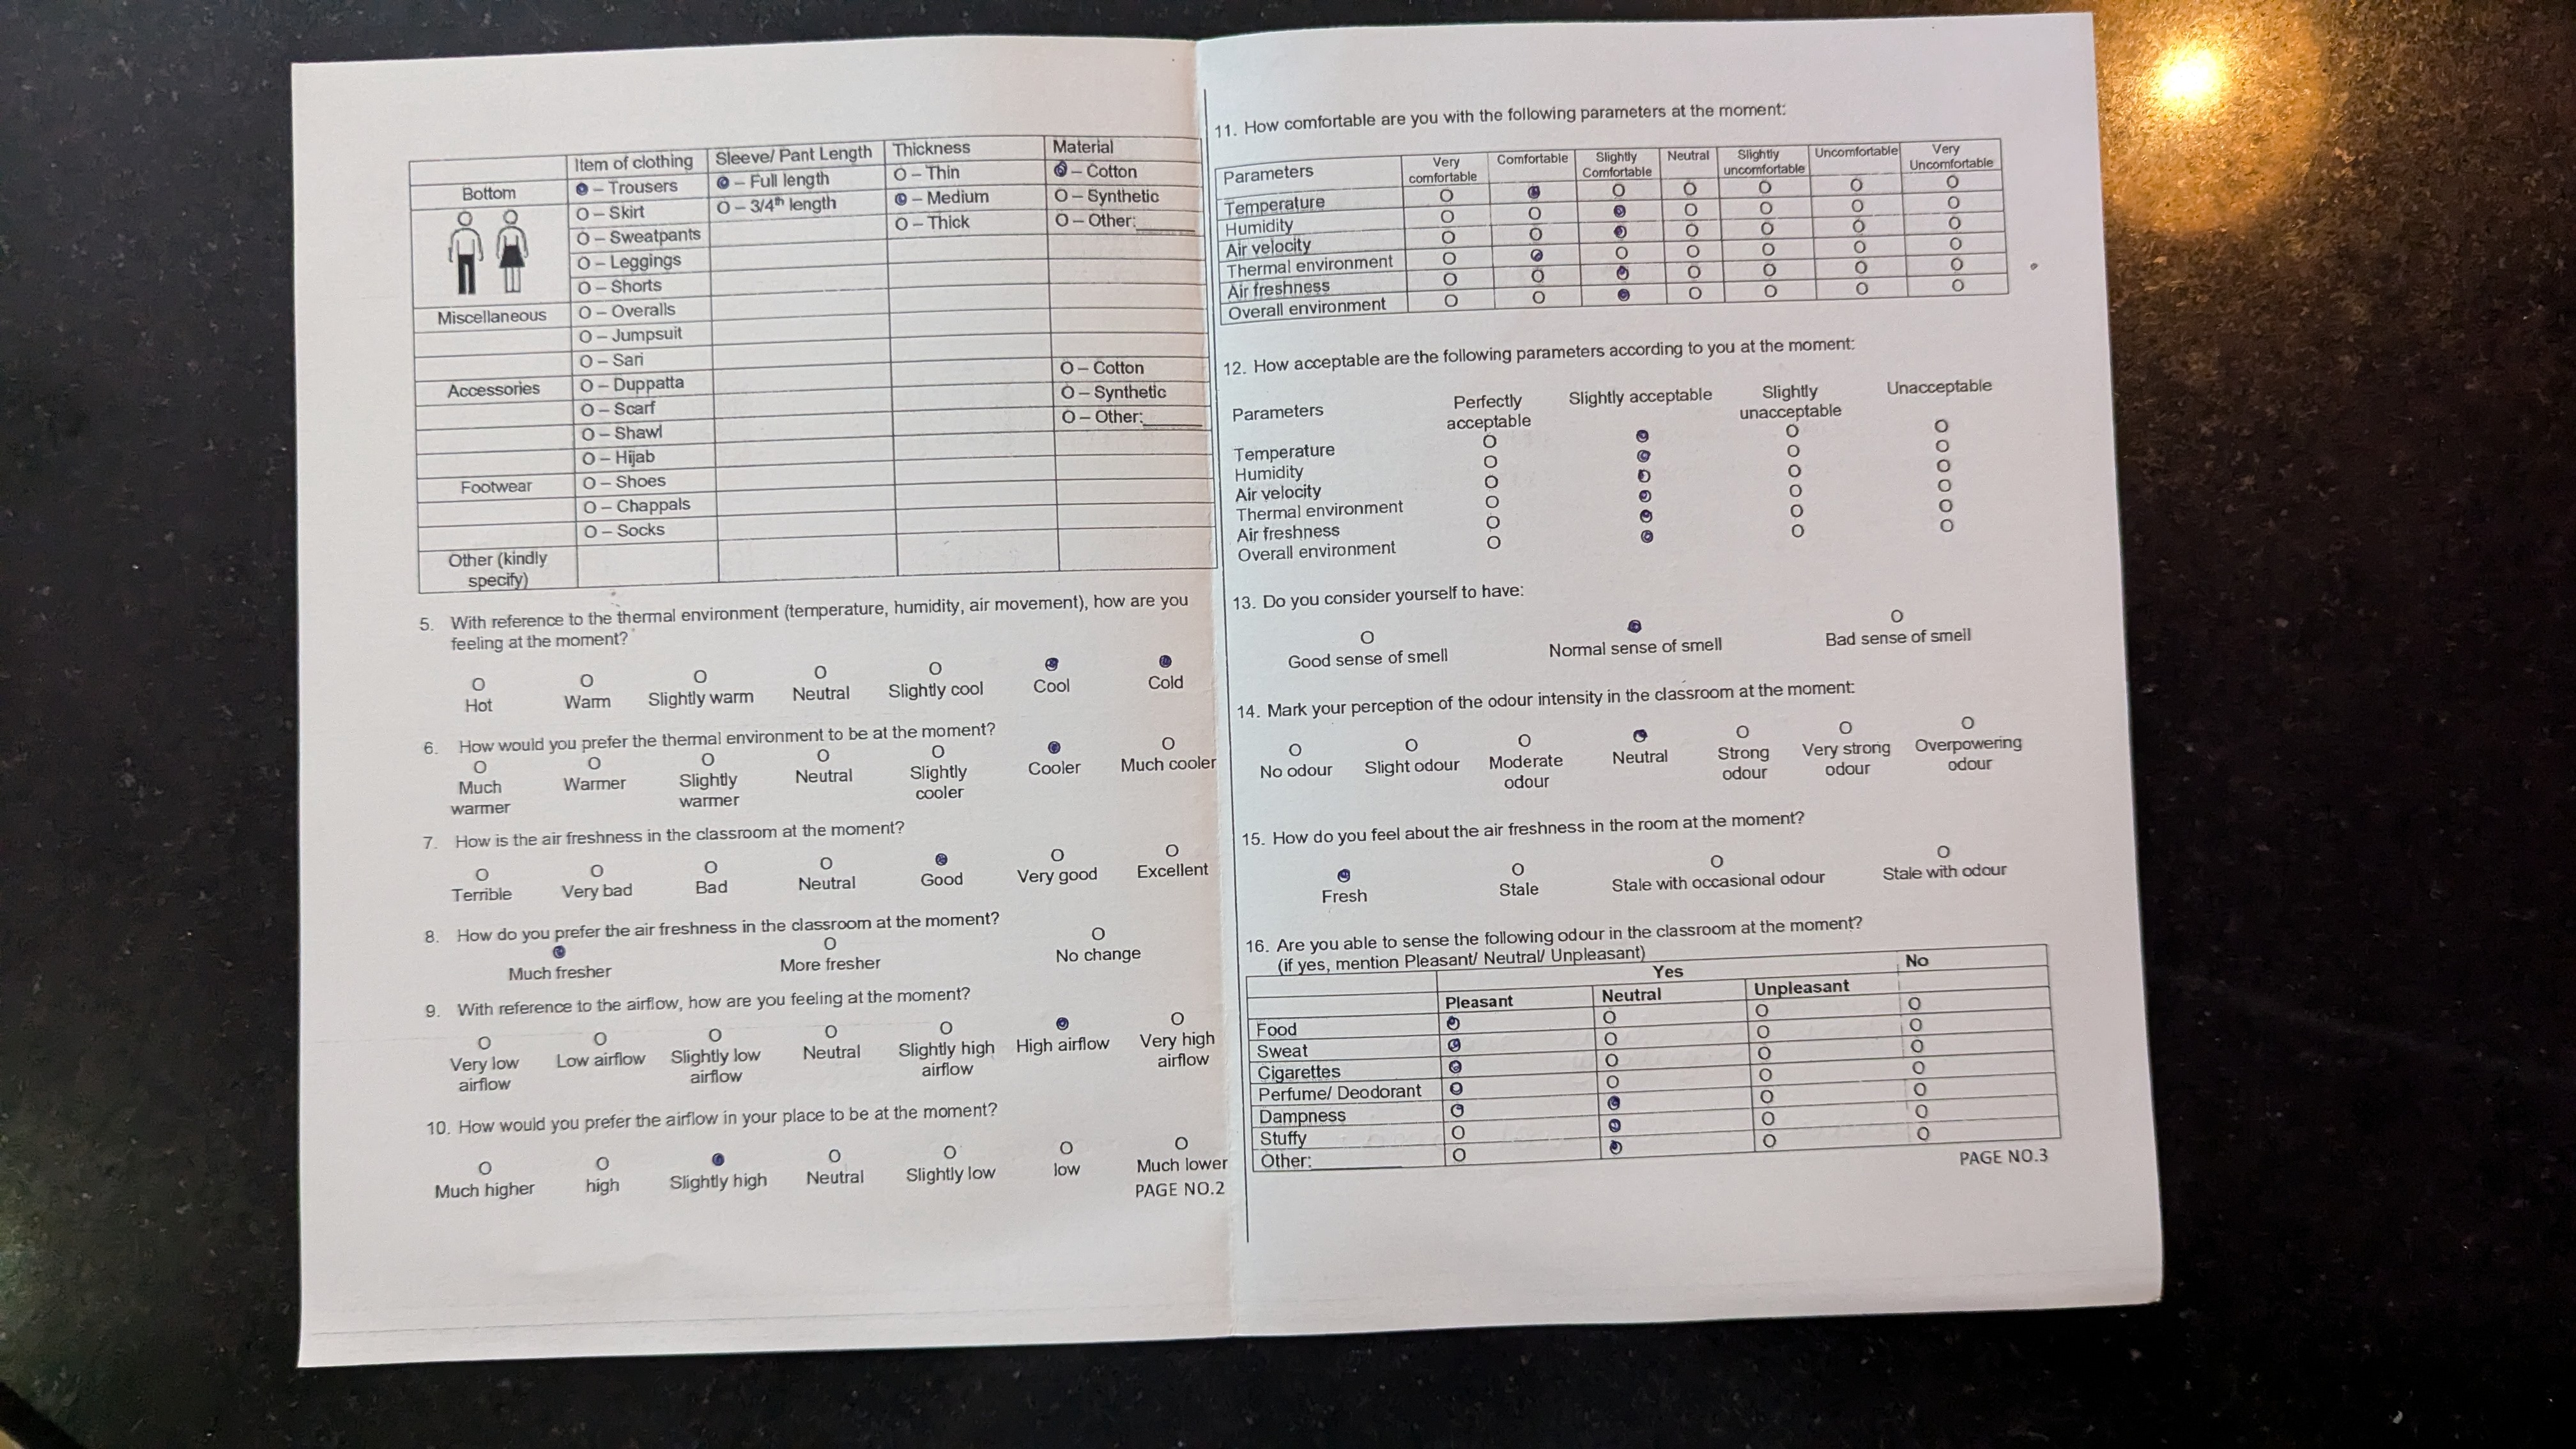 Item of clothing Sleeve/ Pant Length Thickness Material
Bottom O – Trousers O – Full length O – Thin O – Cotton
O – Skirt O – 3/4th length O – Medium O – Synthetic
O – Sweatpants O – Thick O – Other:______
O – Leggings
O – Shorts
Miscellaneous O – Overalls
O – Jumpsuit
O – Sari O – Cotton
Accessories O – Duppatta O – Synthetic
O – Scarf O – Other:______
O – Shawl
O – Hijab
Footwear O – Shoes
O – Chappals
O – Socks
Other (kindly
specify)
5. With reference to the thermal environment (temperature, humidity, air movement), how are you
feeling at the moment?
O O O O O O O
Hot Warm Slightly warm Neutral Slightly cool Cool Cold
6. How would you prefer the thermal environment to be at the moment?
O O O O O O O
Much Warmer Slightly Neutral Slightly Cooler Much cooler
warmer warmer cooler
7. How is the air freshness in the classroom at the moment?
O O O O O O O
Terrible Very bad Bad Neutral Good Very good Excellent
8. How do you prefer the air freshness in the classroom at the moment?
O O O
Much fresher More fresher No change
9. With reference to the airflow, how are you feeling at the moment?
O O O O O O O
Very low Low airflow Slightly low Neutral Slightly high High airflow Very high
airflow airflow airflow airflow
10. How would you prefer the airflow in your place to be at the moment?
O O O O O O O
Much higher high Slightly high Neutral Slightly low low Much lower
PAGE NO.2
11. How comfortable are you with the following parameters at the moment:
Parameters Very Comfortable Slightly Neutral Slightly Uncomfortable Very
comfortable Comfortable uncomfortable Uncomfortable
Temperature O O O O O O O
Humidity O O O O O O O
Air velocity O O O O O O O
Thermal environment O O O O O O O
Air freshness O O O O O O O
Overall environment O O O O O O O
12. How acceptable are the following parameters according to you at the moment:
Parameters Perfectly Slightly acceptable Slightly Unacceptable
acceptable unacceptable
Temperature O O O O
Humidity O O O O
Air velocity O O O O
Thermal environment O O O O
Air freshness O O O O
Overall environment O O O O
13. Do you consider yourself to have:
O O O
Good sense of smell Normal sense of smell Bad sense of smell
14. Mark your perception of the odour intensity in the classroom at the moment:
O O O O O O O
No odour Slight odour Moderate Neutral Strong Very strong Overpowering
odour odour odour odour
15. How do you feel about the air freshness in the room at the moment?
O O O O
Fresh Stale Stale with occasional odour Stale with odour
16. Are you able to sense the following odour in the classroom at the moment?
(if yes, mention Pleasant/ Neutral/ Unpleasant)
Yes No
Pleasant Neutral Unpleasant
Food O O O O
Sweat O O O O
Cigarettes O O O O
Perfume/ Deodorant O O O O
Dampness O O O O
Stuffy O O O O
Other:________ O O O O
PAGE NO.3